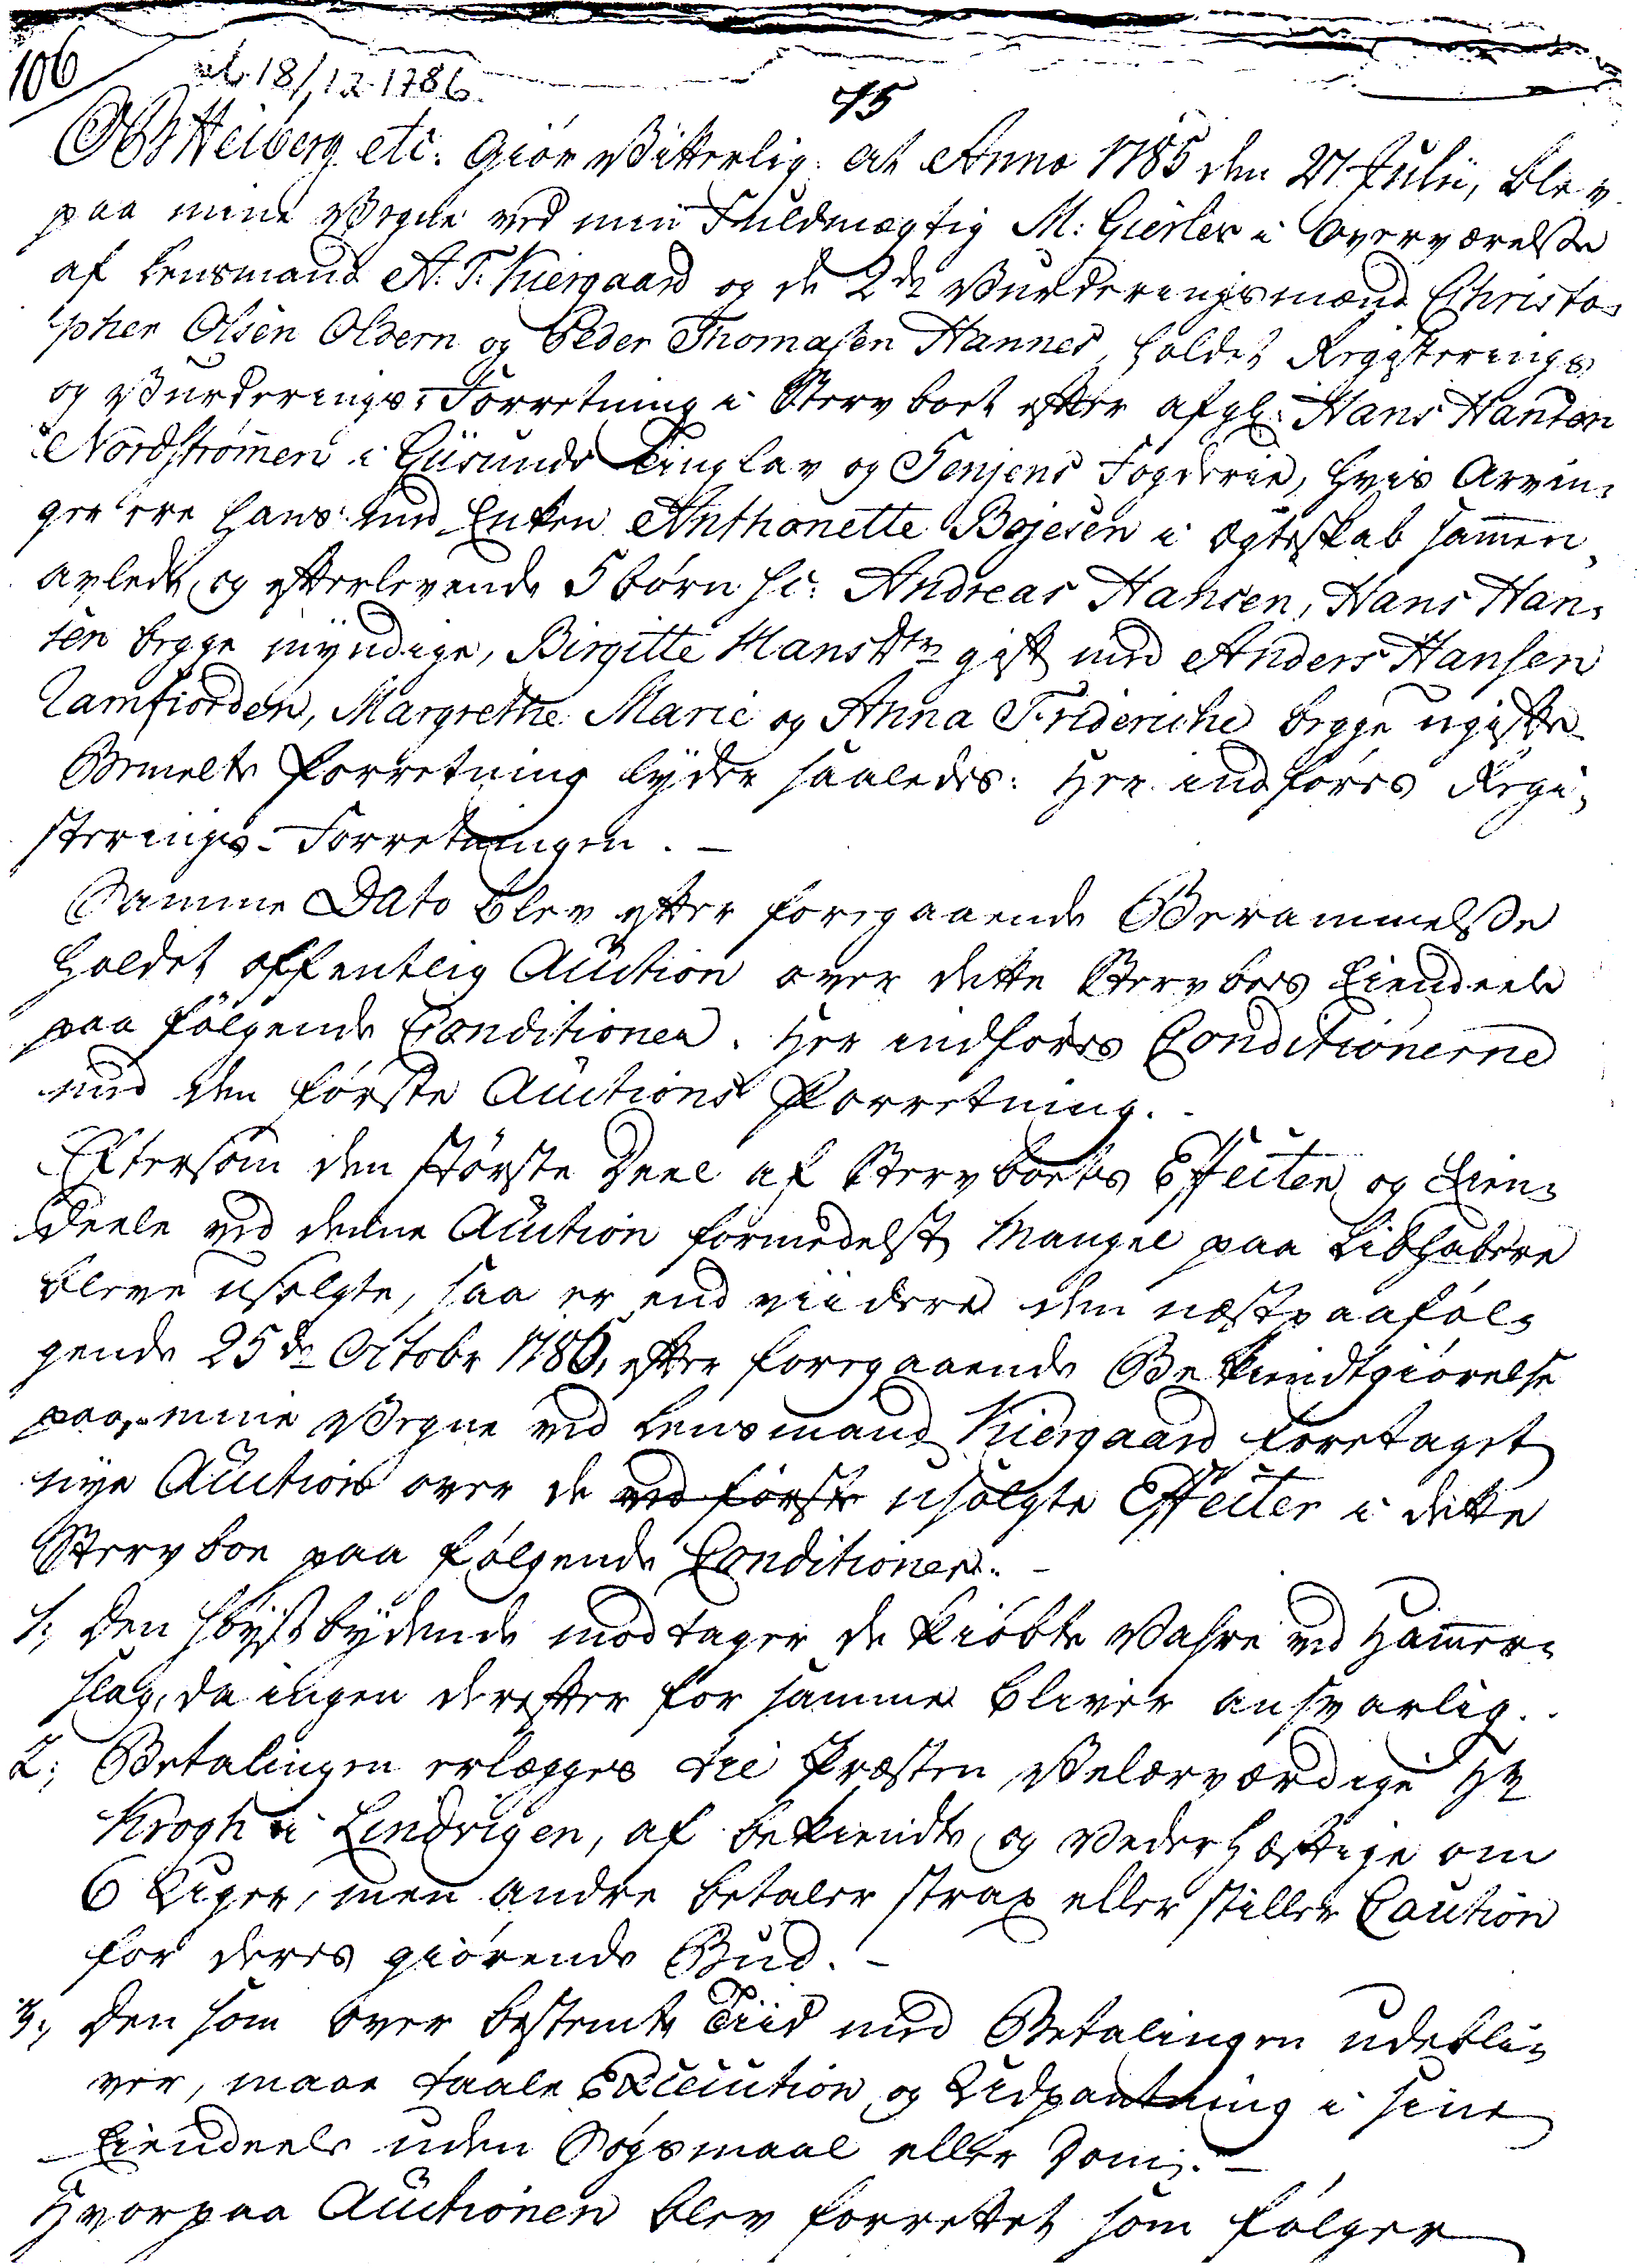 106
18/12 1786
75
OB Heiberg etc. Giör Vitterlig: At Anno 1785 den 27 Julii, blev
paa mine Vegne ved min Fuldmægtig M: Gierløv i Overværelse
af Lensmand A. T. Kiergaard og de 2de Vurderingsmænd Christo-
pher Olsen Oldern og Peder Thomasen Hannes, holdet Registerings
og Vurderings-Forretning i Stervboet efter afgl: Hans Handsøn
Nordstrømen i Giisunds Tinglav og Senjens Fogderie, hvis Arvin-
ger ere hans med Enken Anthonette Bojesen i Ægteskab sammen-
avlede og efterlevende 5 börn sc: Andreas Hansen, Hans Han-
sen begge myndige, Birgitte Hansdtr gift med Anders Hansen
Ramfiorden, Margrethe Marie og Anna Frideriche begge ugifte.
Bemelte Forretning lyder saaledes: Her indföres Regi-
sterings-Forretningen. —
Samme Dato blev efter foregaaende Berammelse
holdet offentlig Auction over dette Stervboes Eiendeele
paa fölgende Conditioner. Her indföres Conditionerne
med den förste Auctions Forretning. -
Eftersom den störste Deel af Stervboets Effecter og Eien-
deele ved denne Auction formedelst Mangel paa Liebhabere
bleve usolgte, saa er end viidere den næstpaaföl-
gende 25de Octobr 1786, efter foregaaende Bekiendtgiörelse
paa mine Vegne ved Lensmand Kiergaard foretaget
nye Auction over de ved förste usolgte Effecter i dette
Stervboe paa fölgende Conditioner. -
1; Den höystbydende modtager de kiöbte Vahre ved Hammer-
slag, da ingen derefter for samme bliver ansvarlig. -
2; Betalingen erlægges til Præsten Velærværdige Hr
Krogh i Lendvigen, af bekiendte og Vederhæftige om
6 Uger, men andre betaler strax eller stiller Caution
for deres giörende Bud. -
3; Den som over bestemte Tiid med Betalingen udebli-
ver, maae taale Execution og Udpantning i sine
Eiendeele uden Sögsmaal eller Dom. —
Hvorpaa Auctionen blev forrettet som fölger